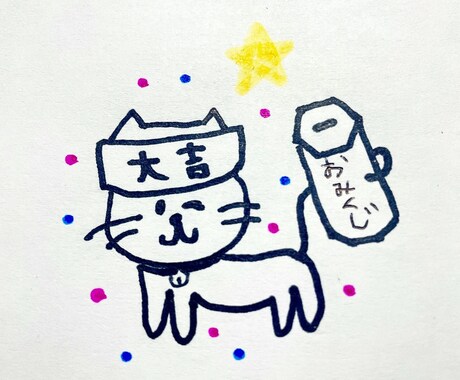 大吉
おみくじ